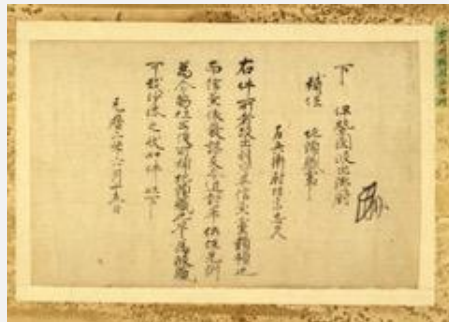 下 伊勢国波出御厨
補任 地頭職事
左兵衛尉惟宗忠久
右件所者故出羽守平信兼党類領也
而信兼依発謀反令追討畢仍任先例
為令勤仕公役所補地頭職也早為彼職
可致沙汰之状如件以下
元暦二年六月十五日